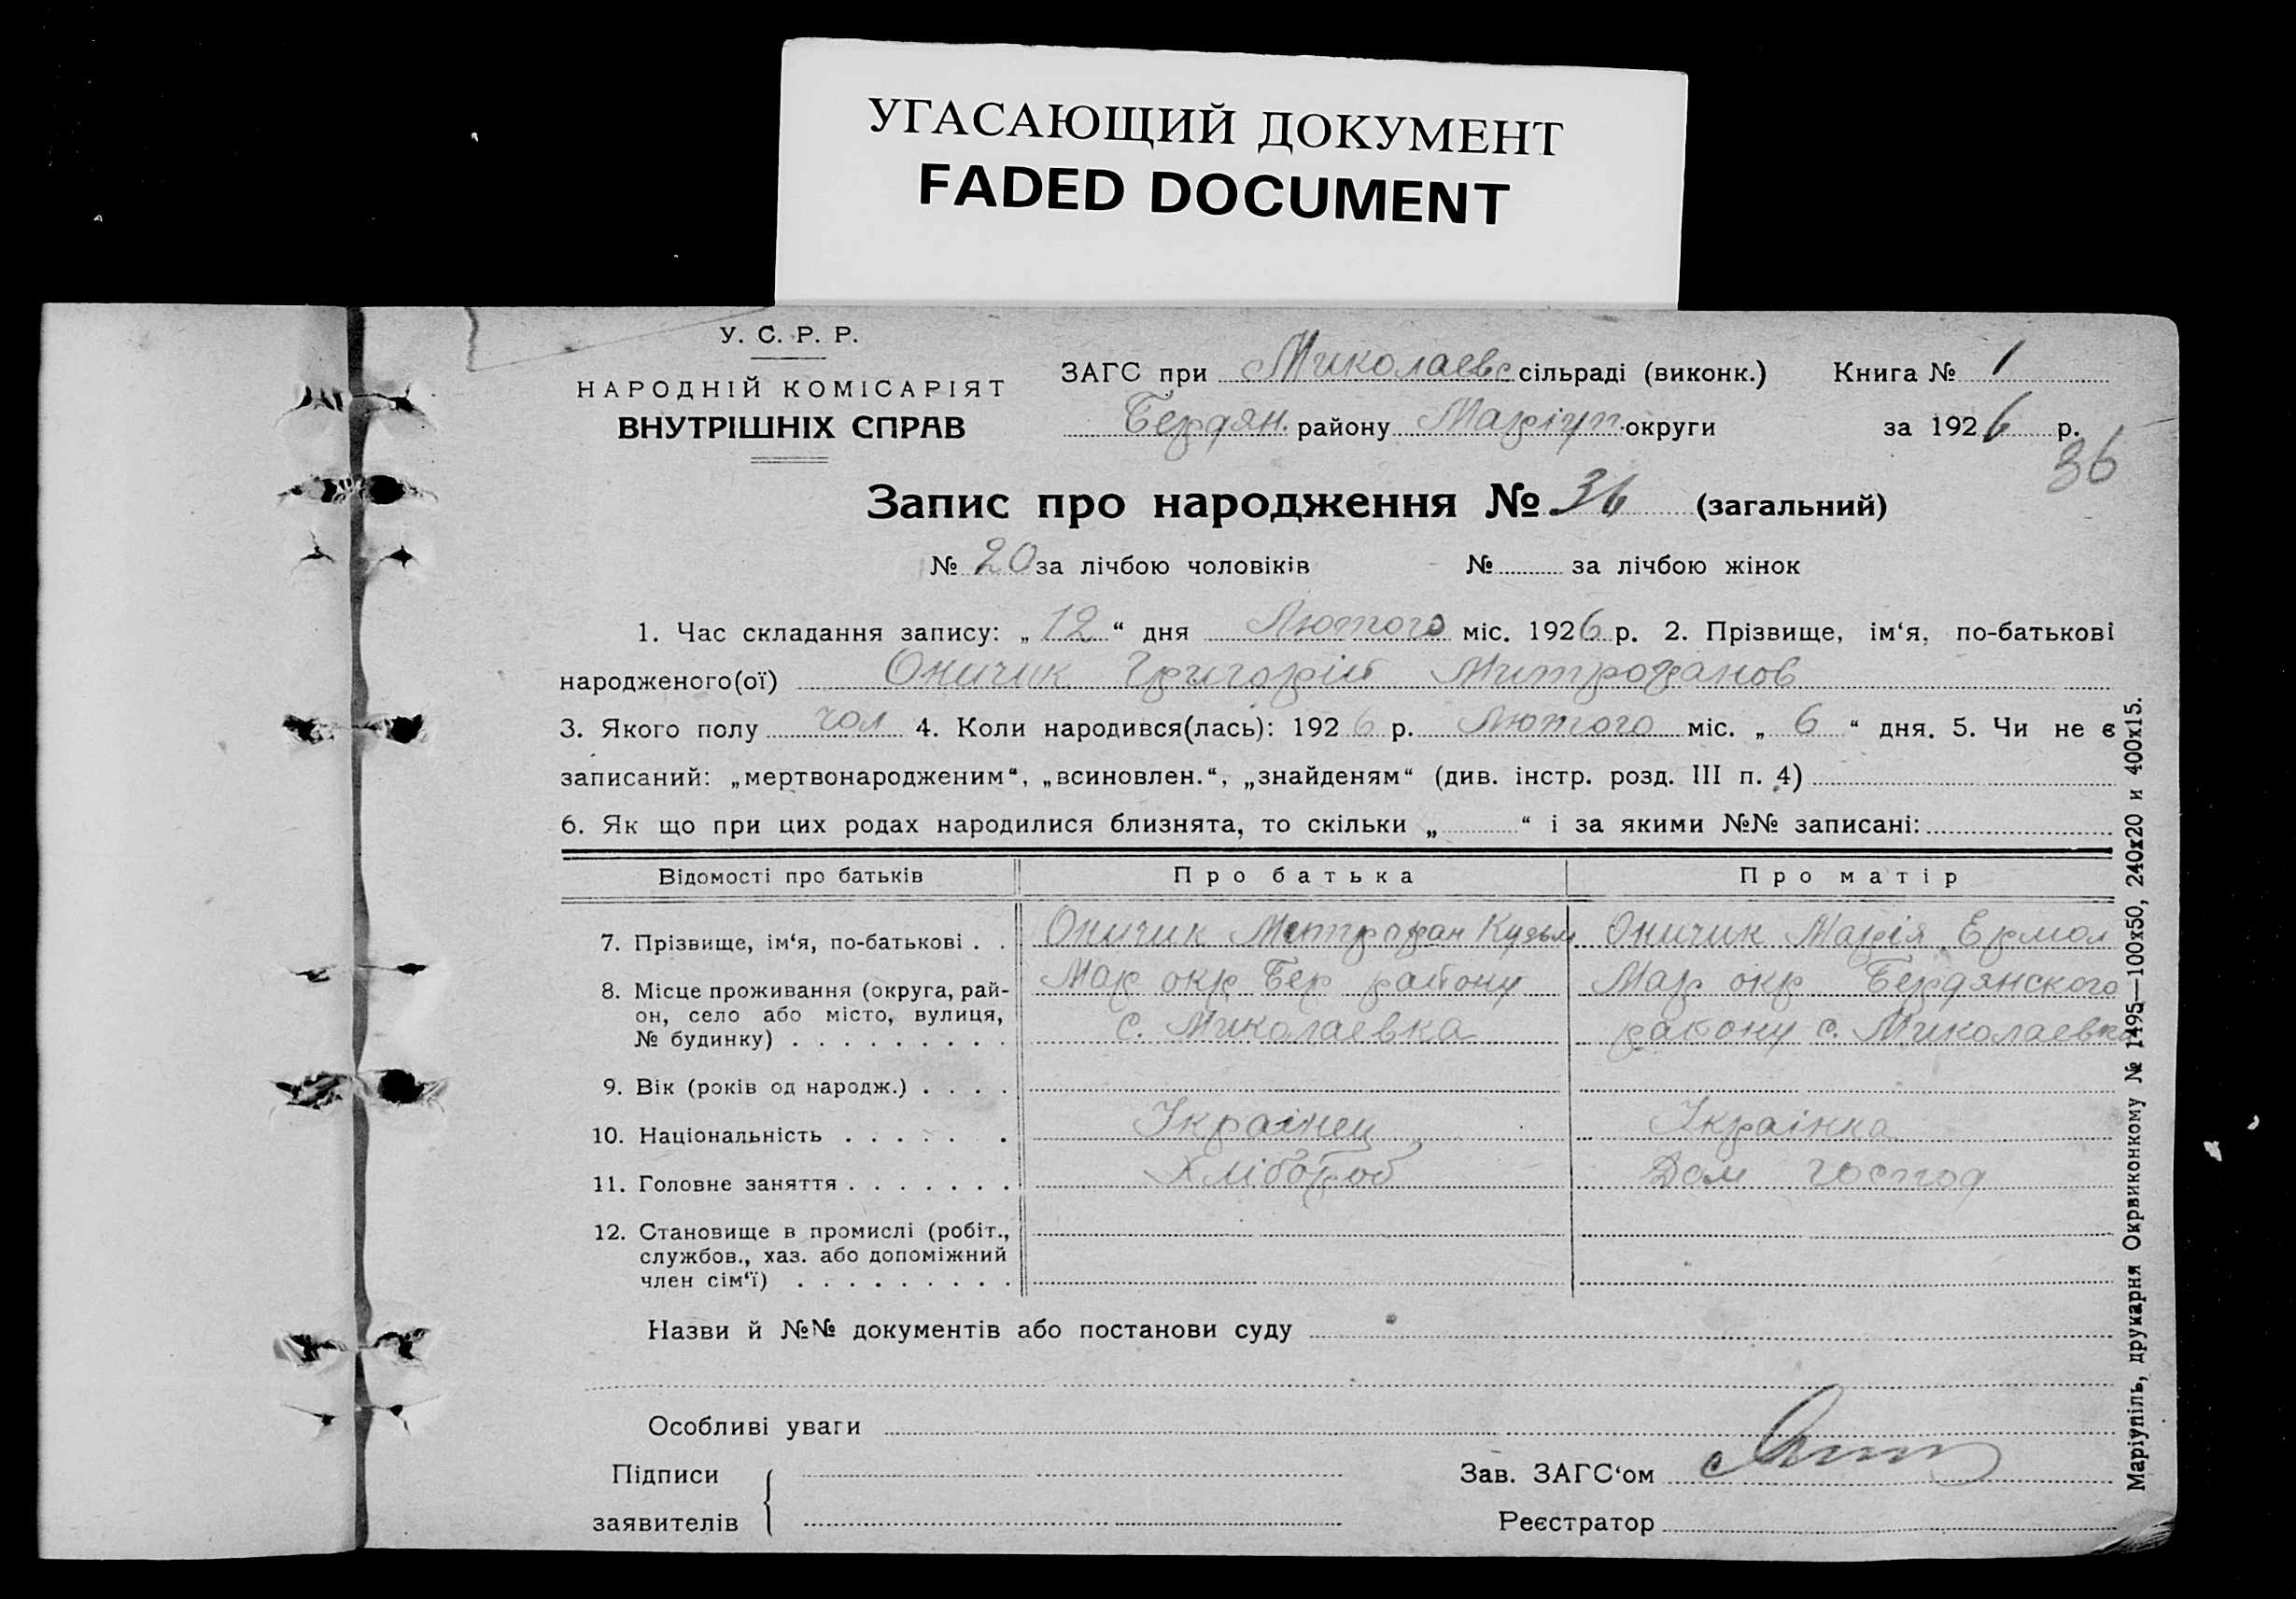 УГАСАЮЩИЙ ДОКУМЕНТ
FADED DOCUMENT
У. С. Р. Р.
НАРОДНІЙ КОМІСАРІЯТ
ВНУТРІШНІХ СПРАВ
ЗАГС при Миколаевс сільраді (виконк.) Книга № 1
Бердян. району Маріуп. округи за 1926 р.
36
Запис про народження № 36 (загальний)
№ 20 за лічбою чоловіків № за лічбою жінок
1. Час складання запису: „12“ дня Лютого міс. 1926 р. 2. Прізвище, ім‘я, по-батькові
народженого(ої) Оничик Григорій Митрофанов
3. Якого полу чол 4. Коли народився(лась): 1926 р. Лютого міс. „6“ дня. 5. Чи не є
записаний: „мертвонародженим“, „всиновлен.“, „знайденям“ (див. інстр. розд. III п. 4)
6. Як що при цих родах народилися близнята, то скільки „ “ і за якими №№ записані:
Відомості про батьків Про батька Про матір
7. Прізвище, ім‘я, по-батькові . . Оничик Митрофан Кузьм Оничик Марія Ермол
8. Місце проживання (округа, рай- Мар окр Бер району Мар окр Бердянского
он, село або місто, вулиця, с. Миколаевка району с. Миколаевка
№ будинку) . . . . . . . . .
9. Вік (років од народж.) . . . .
10. Національність . . . . . . Українец Українка
11. Головне заняття . . . . . . . Хлібороб Дом господ
12. Становище в промислі (робіт.,
службов., хаз. або допоміжний
член сім‘ї) . . . . . . . . .
Назви й №№ документів або постанови суду
Особливі уваги
Підписи Зав. ЗАГС‘ом
заявителів Реєстратор
Маріупіль, друкарня Окрвиконкому № 1495—100x50, 240x20 и 400x15.